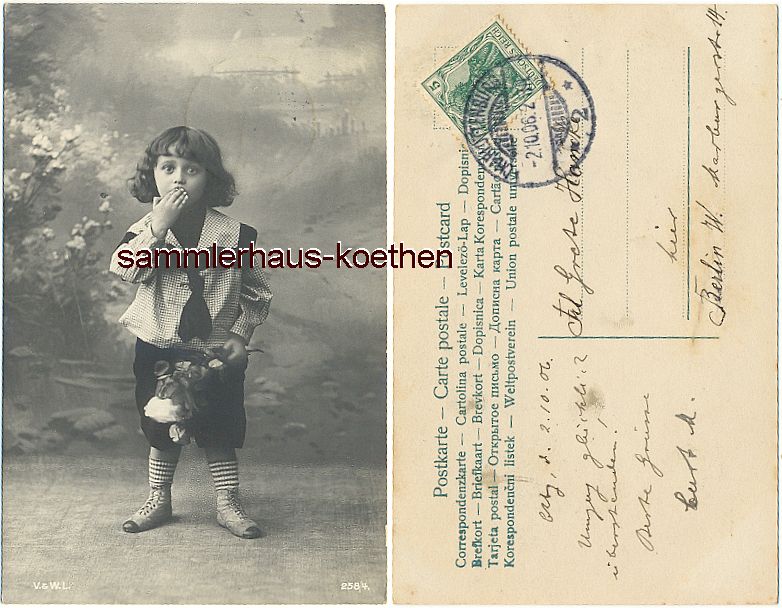 sammlerhaus-koethen
V.& W.L.
2584.
Postkarte – Carte postale – Postcard
Correspondenzkarte – Cartolina postale – Levelező-Lap – Dopisnic
Brefkort – Briefkaart – Brevkort – Dopisnica – Karta Korespondenc
Tarjeta postal – Открытое письмо – Дописна карта – Cartă
Korespondenční lístek – Weltpostverein – Union postale universelle
DEUTSCHES REICH
5
-2.10.06. 2
* 2
Frl Grete
hier
Berlin W. Marburgerstr 14.
d. 2.10.06.
Umzug glücklich
überstanden!
Beste Grüsse
Curt M.